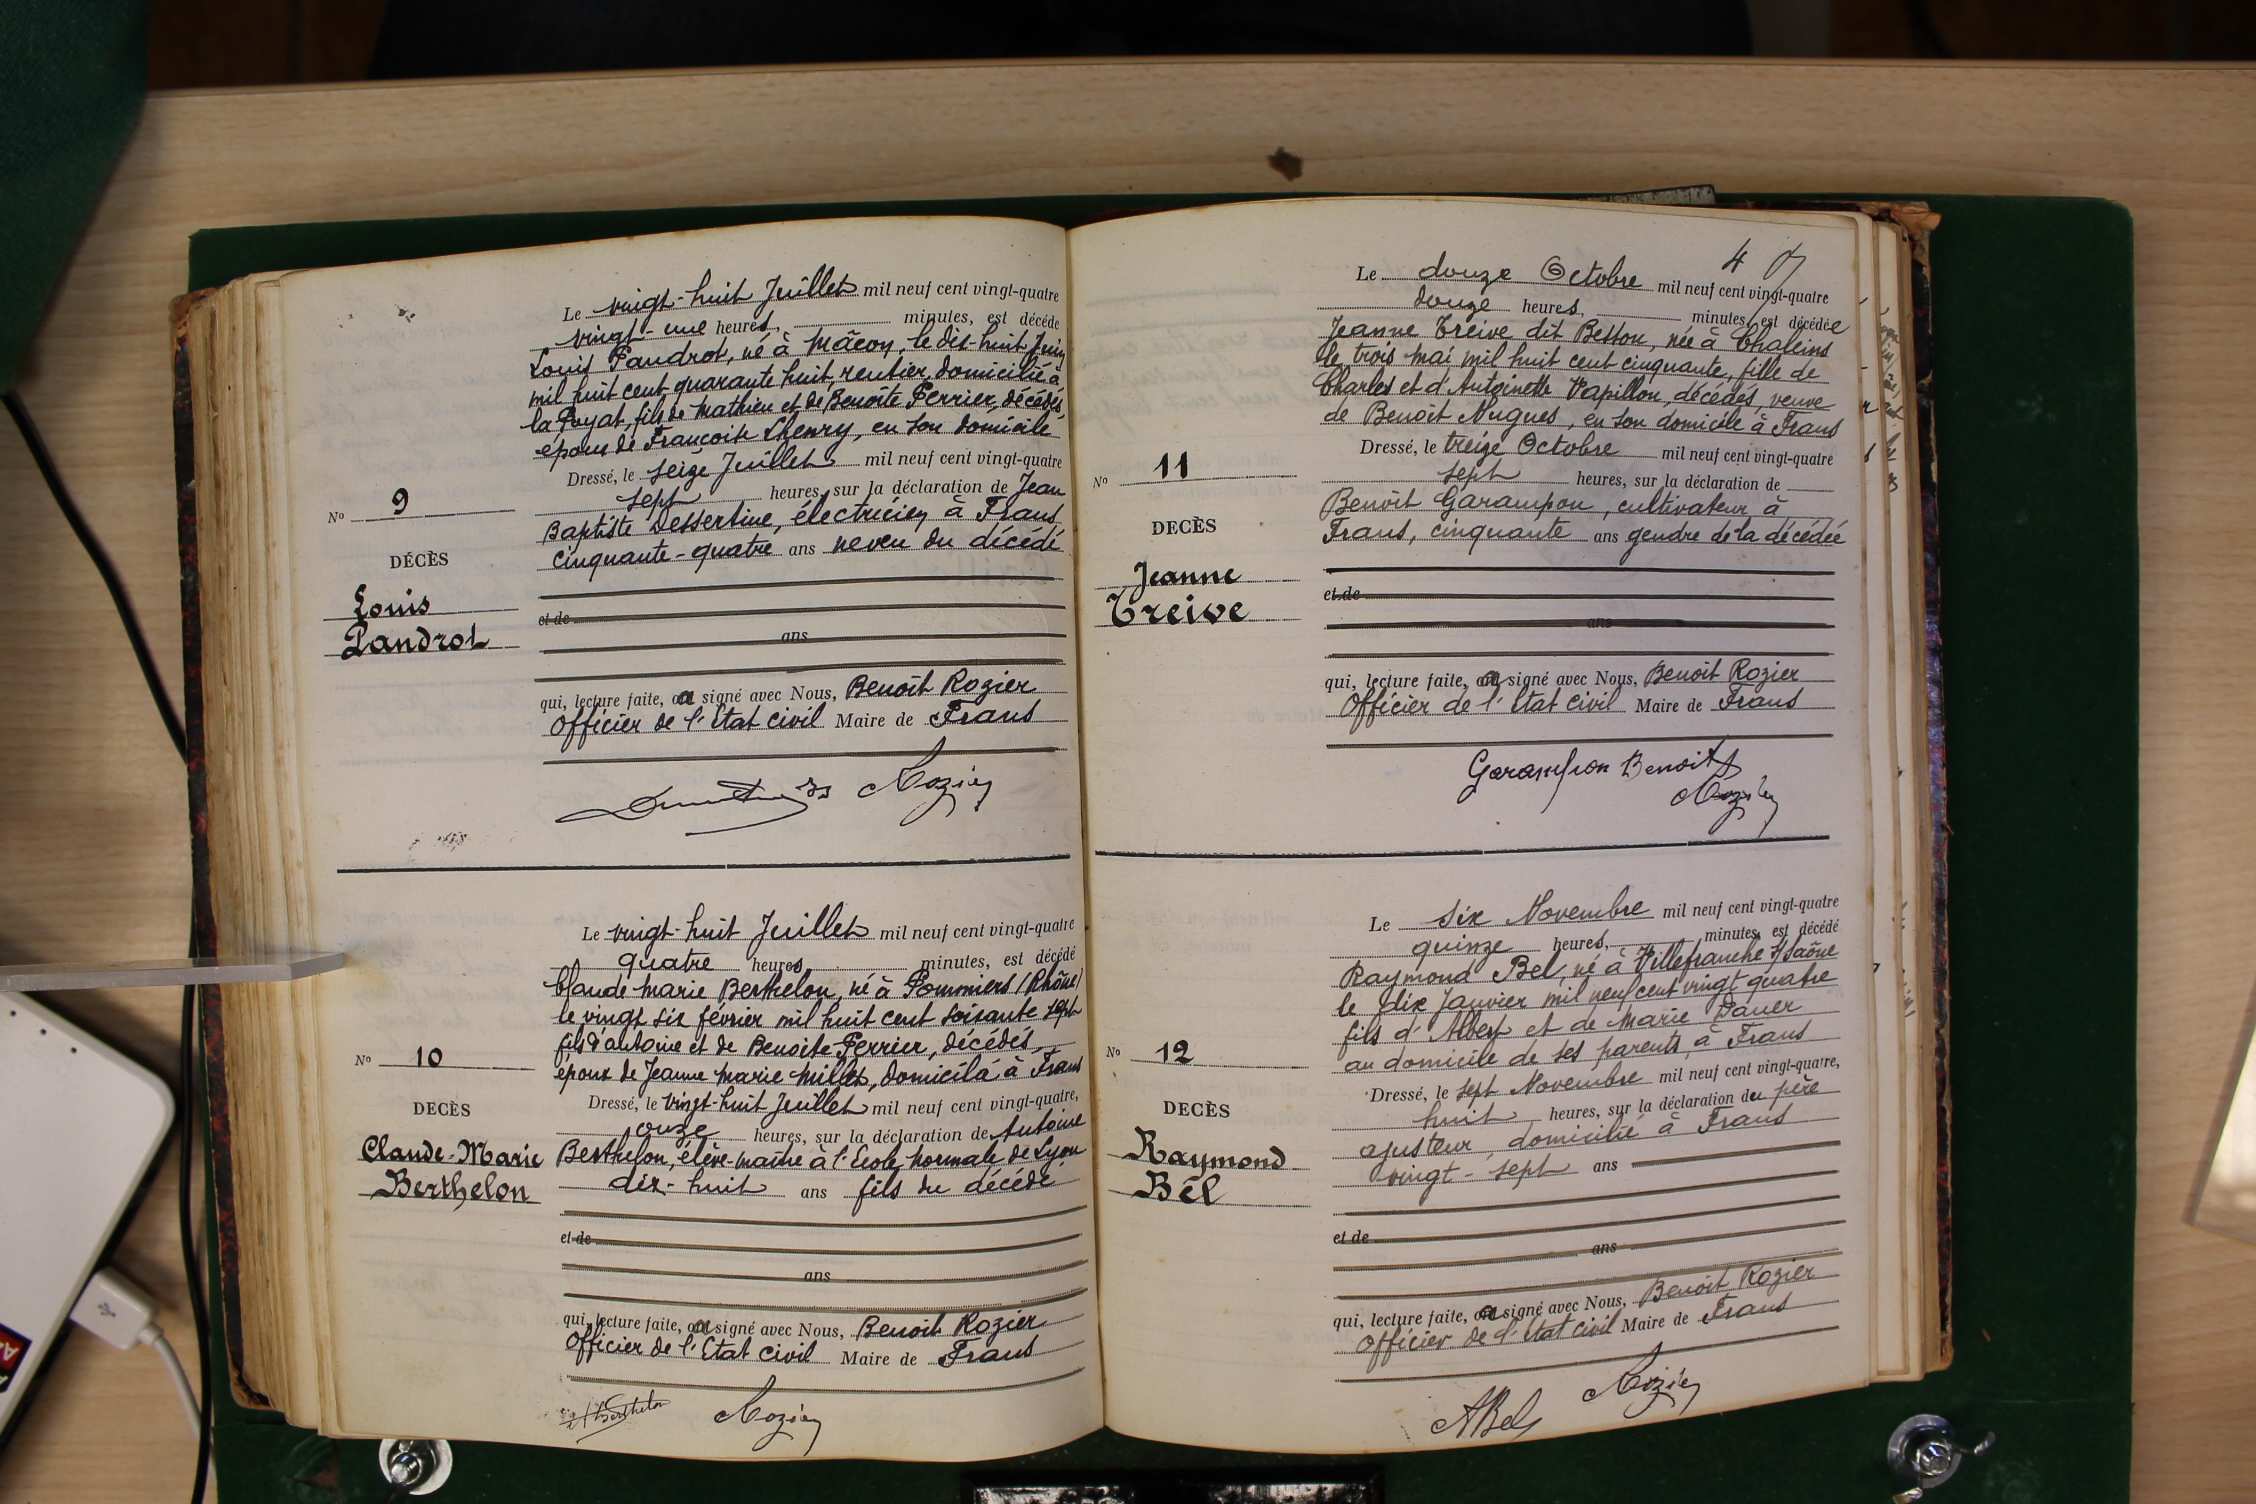 Le vingt-huit Juillet mil neuf cent vingt-quatre
vingt-une heures, minutes, est décédé
Louis Pandrot, né à Mâcon, le dix-huit Juin
mil huit cent quarante huit, rentier, domicilié à
la Poyat, fils de Mathieu et de Benoîte Perrier, décédés,
époux de Françoise Chenry, en son domicile
Dressé, le seize Juillet mil neuf cent vingt-quatre
sept heures, sur la déclaration de Jean
Baptiste Dessertine, électricien à Frans
cinquante-quatre ans neveu du décédé
et de
ans
qui, lecture faite, a signé avec Nous, Benoît Rozier
Officier de l'Etat civil Maire de Frans
Rozier
No 9
DÉCÈS
Louis
Pandrot
Le vingt-huit Juillet mil neuf cent vingt-quatre
quatre heures minutes, est décédé
Claude Marie Berthelon, né à Pommiers (Rhône)
le vingt six février mil huit cent soixante sept
fils d'antoine et de Benoite Perrier, décédés,
époux de Jeanne Marie Millet, domicilié à Frans
Dressé, le vingt-huit Juillet mil neuf cent vingt-quatre,
onze heures, sur la déclaration de Antoine
Berthelon, élève-maître à l'Ecole normale de Lyon
dix-huit ans fils du décédé
et de
ans
qui, lecture faite, a signé avec Nous, Benoit Rozier
Officier de l'Etat civil Maire de Frans
Berthelon Rozier
No 10
DECÈS
Claude-Marie
Berthelon
4
Le douze Octobre mil neuf cent vingt-quatre
douze heures, minutes, est décédée
Jeanne Treive dit Besson, née à Chaleins
le trois mai mil huit cent cinquante, fille de
Charles et d'Antoinette Vapillon, décédés, veuve
de Benoit Nugues, en son domicile à Frans
Dressé, le treize Octobre mil neuf cent vingt-quatre
sept heures, sur la déclaration de
Benoît Garampon, cultivateur à
Frans, cinquante ans gendre de la décédée
et de
ans
qui, lecture faite, a signé avec Nous, Benoit Rozier
Officier de l'Etat civil Maire de Frans
Garampon Benoit
Rozier
No 11
DECÈS
Jeanne
Treive
Le six Novembre mil neuf cent vingt-quatre
quinze heures, minutes, est décédé
Raymond Bel, né à Villefranche s/Saône
le dix Janvier mil neuf cent vingt quatre
fils d'Albert et de Marie Daner
au domicile de ses parents, à Frans
Dressé, le sept Novembre mil neuf cent vingt-quatre,
huit heures, sur la déclaration du père
ajusteur domicilié à Frans
vingt-sept ans
et de
ans
qui, lecture faite, a signé avec Nous, Benoit Rozier
Officier de l'Etat civil Maire de Frans
ABel Rozier
No 12
DECÈS
Raymond
Bél